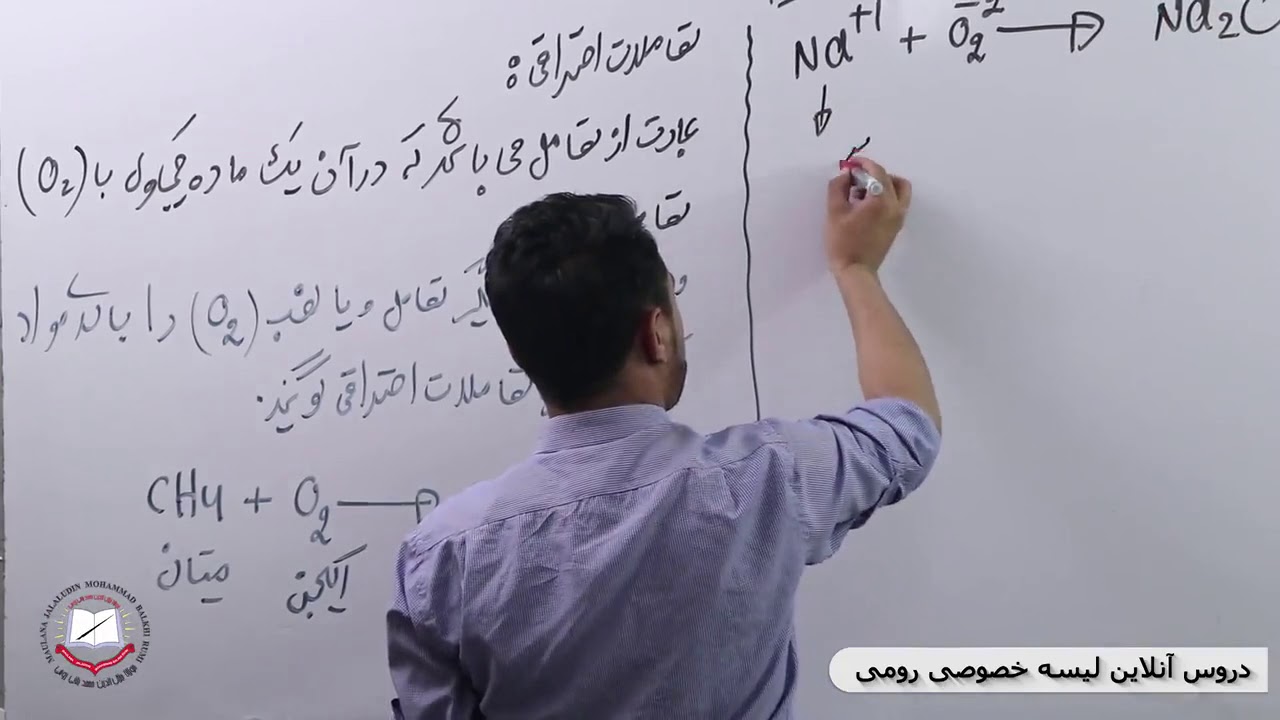 تعاملات احتراقی :
عبارت از تعامل می باشد که در آن یک ماده کیمیاوی با (O₂)
تعا
و تعامل و یا نصب (O₂) را بالای مواد
تعاملات احتراقی گویند.
CH4 + O₂ →
میتان آکسیجن
Na⁺¹ + O₂⁻² → Na₂O
MAULANA JALALUDIN MOHAMMAD BALKHI RUMI
دروس آنلاین لیسه خصوصی رومی